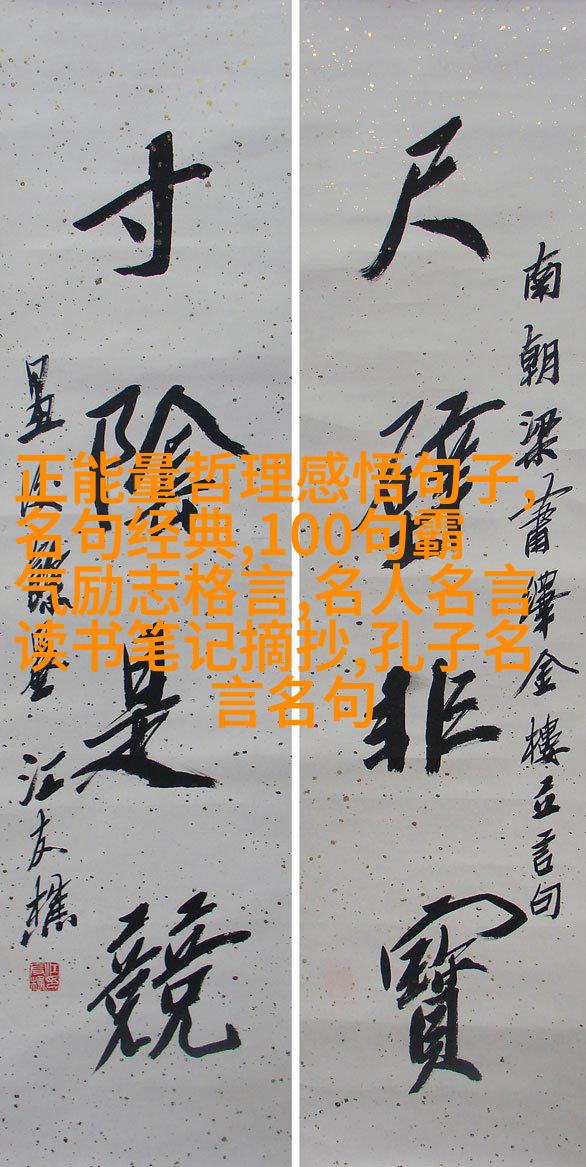 南朝梁蕭繹金樓立言句
尺璧非寶
寸陰是競
汪友樵
正能量哲理感悟句子,
名句经典,100句霸
气励志格言,名人名言
读书笔记摘抄,孔子名
言名句